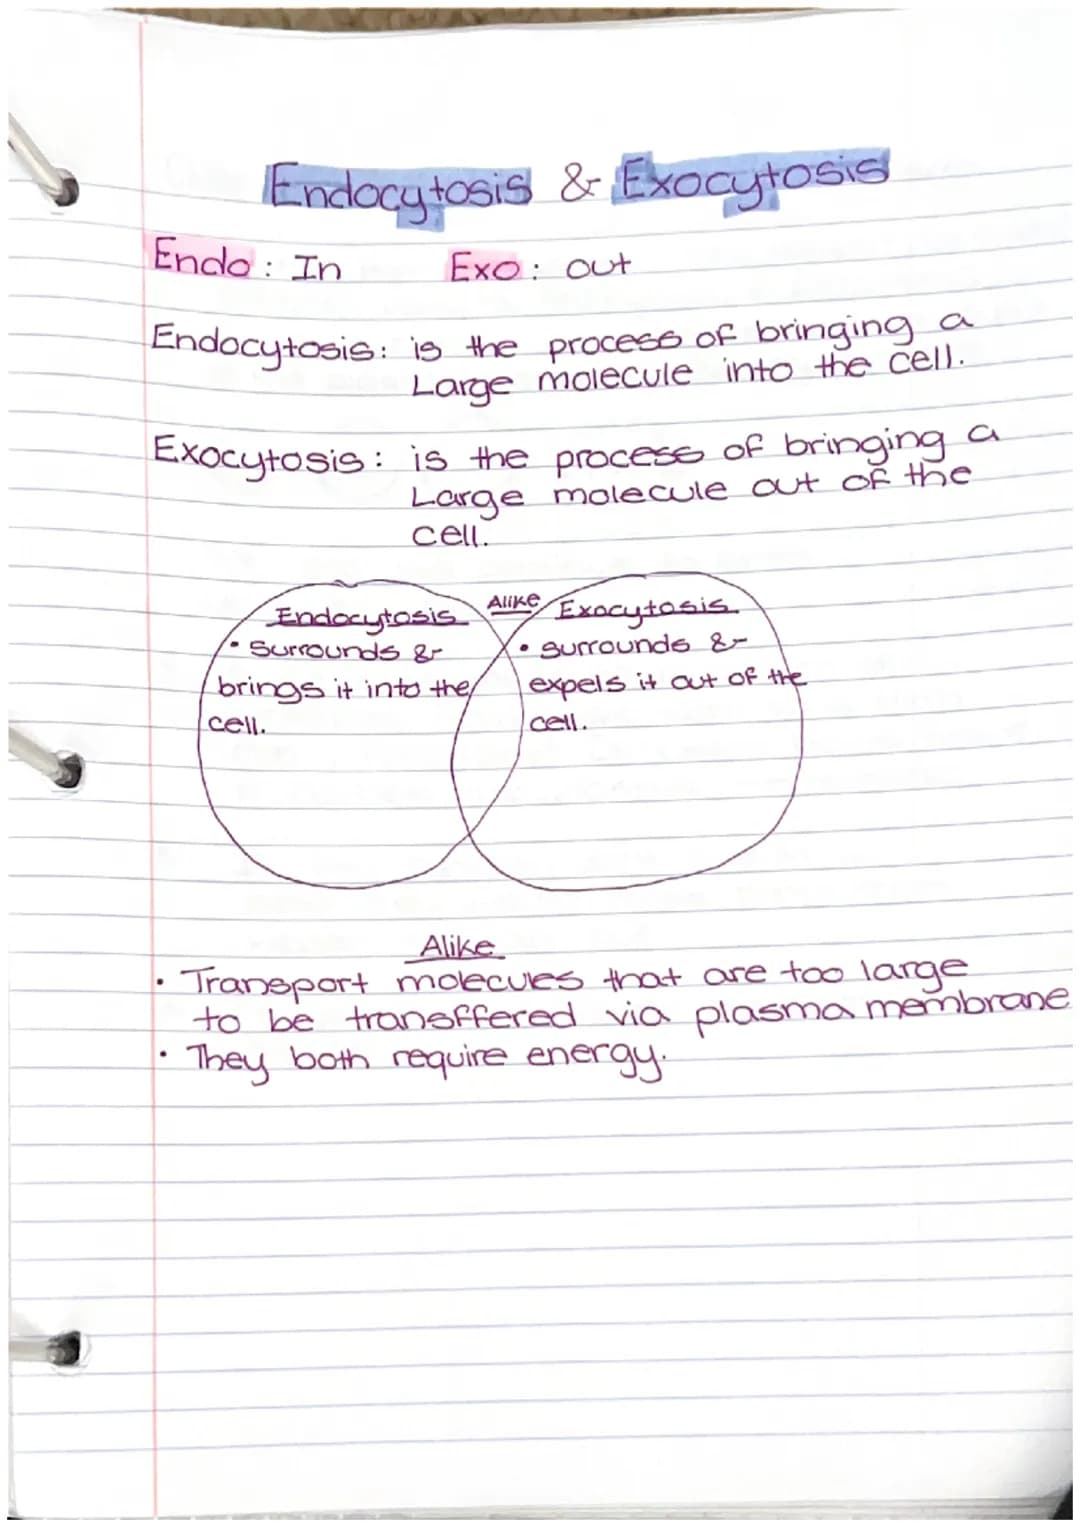 Endocytosis & Exocytosis
Endo: In Exo: out
Endocytosis: is the process of bringing a
Large molecule into the cell.
Exocytosis: is the process of bringing a
Large molecule out of the
cell.
Endocytosis
• Surrounds &
brings it into the
cell.
Alike
Exocytosis
• surrounds &
expels it out of the
cell.
Alike
• Transport molecules that are too large
to be transffered via plasma membrane
• They both require energy.